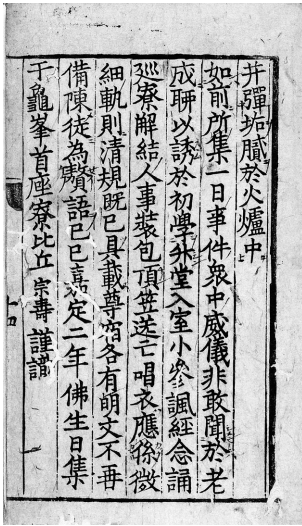 并彈垢膩於火爐中
如前所集一日事件衆中威儀非敢聞於老
成聊以誘於初學升堂入室小參諷經念誦
巡寮解結人事裝包頂笠送亡唱衣應係微
細軌則清規既已具載尊宿各有明文不再
備陳徒爲贅語己巳嘉定二年佛生日集
于龜峯首座寮比丘宗壽謹識